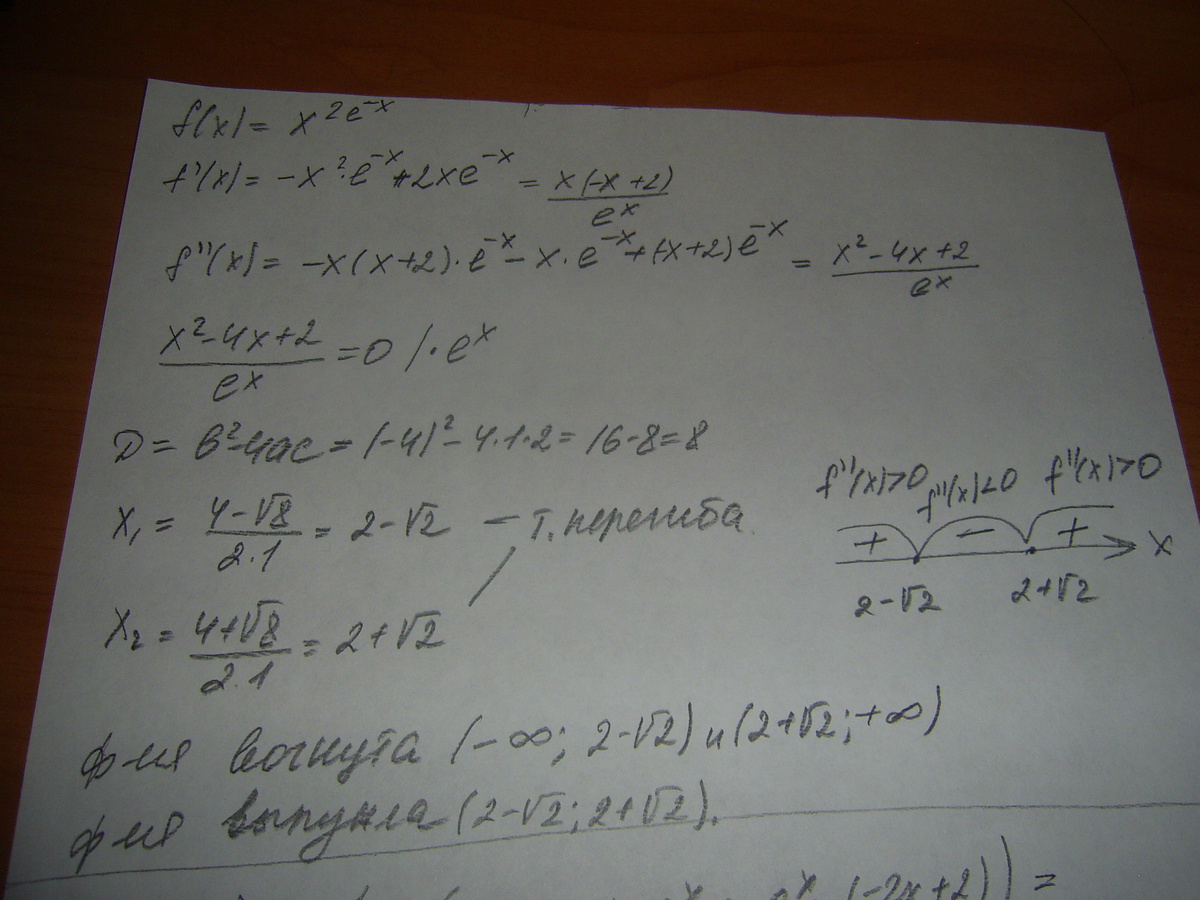 f(x) = x²e⁻ˣ
f'(x) = -x²·e⁻ˣ + 2xe⁻ˣ = x(-x+2)/eˣ
f''(x) = -x(x+2)·e⁻ˣ - x·e⁻ˣ + (-x+2)e⁻ˣ = x²-4x+2/eˣ
x²-4x+2/eˣ = 0 /·eˣ
D = в²-4ас = (-4)²-4·1·2 = 16-8=8
x₁ = 4-√8/2·1 = 2-√2 - т. перегиба
x₂ = 4+√8/2·1 = 2+√2
f''(x)>0 f''(x)<0 f''(x)>0
+ - + x
2-√2 2+√2
ф-ия вогнута (-∞; 2-√2) и (2+√2; +∞)
ф-ия выпукла (2-√2; 2+√2).
(-2x+2)) =